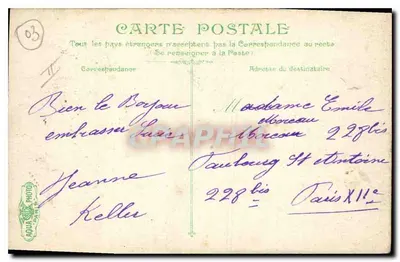 03
CARTE POSTALE
Tous les pays étrangers n'acceptent pas la Correspondance au recto
Se renseigner à la Poste
Correspondance
Adresse du destinataire
II
Bien le Bonjour
embrasser
Jeanne
Keller
Madame Emile
Moreau
Moreau 228 bis
Faubourg St Antoine
228 bis
Paris XIIe
AQUA PHOTO